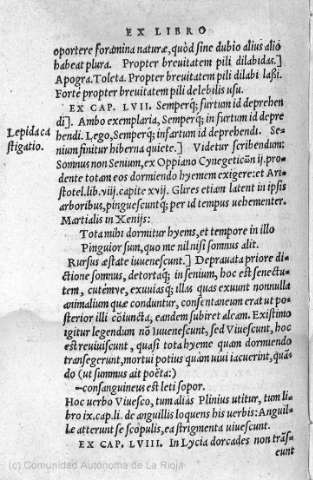 EX LIBRO
oportere foramina naturæ, quòd sine dubio alius aliò
habeat plura. Propter breuitatem pili dilabidas.]
Apogra. Toleta. Propter breuitatem pili dilabi laßi.
Forte propter breuitatem pili delebilis usu.
EX CAP. LVII. Semperq; furtum id deprehen
di] Ambo exemplaria, Semperq; in furtum id depre
Lepida ca
stigatio.
hendi. Lego, Semperq; infartum id deprehendi. Se-
nium finitur hiberna quiete.] Videtur scribendum:
Somnus non Senium, ex Oppiano Cynegeticῶn ij. pro-
dente totam eos dormiendo hyemem exigere: et Ari-
stotel. lib. viij. capite xvij. Glires etiam latent in ipsis
arboribus, pinguescuntq; per id tempus uehementer.
Martialis in Xenijs:
Tota mihi dormitur hyems, et tempore in illo
Pinguior sum, quo me nil nisi somnus alit.
Rursus æstate iuuenescunt.] Deprauata priore di-
ctione somnus, detortaq; in senium, hoc est senectu-
tem, cutémve, exuuiasq; illas quas exuunt nonnulla
animalium quæ conduntur, consentaneum erat ut po-
sterior illi cōiuncta, eandem subiret aleam. Existimo
igitur legendum nō iuuenescunt, sed Viuescunt, hoc
est reuiuiscunt, quasi tota hyeme quam dormiendo
transegerunt, mortui potius quàm uiui iacuerint, quā-
do (ut summus ait poëta:)
—consanguineus est leti sopor.
Hoc uerbo Viuesco, tum alias Plinius utitur, tum li-
bro ix. cap. li. de anguillis loquens his uerbis: Anguil-
læ atterunt se scopulis, ea strigmenta uiuescunt.
EX CAP. LVIII. In Lycia dorcades non trās-
eunt
(c) Comunidad Autónoma de La Rioja